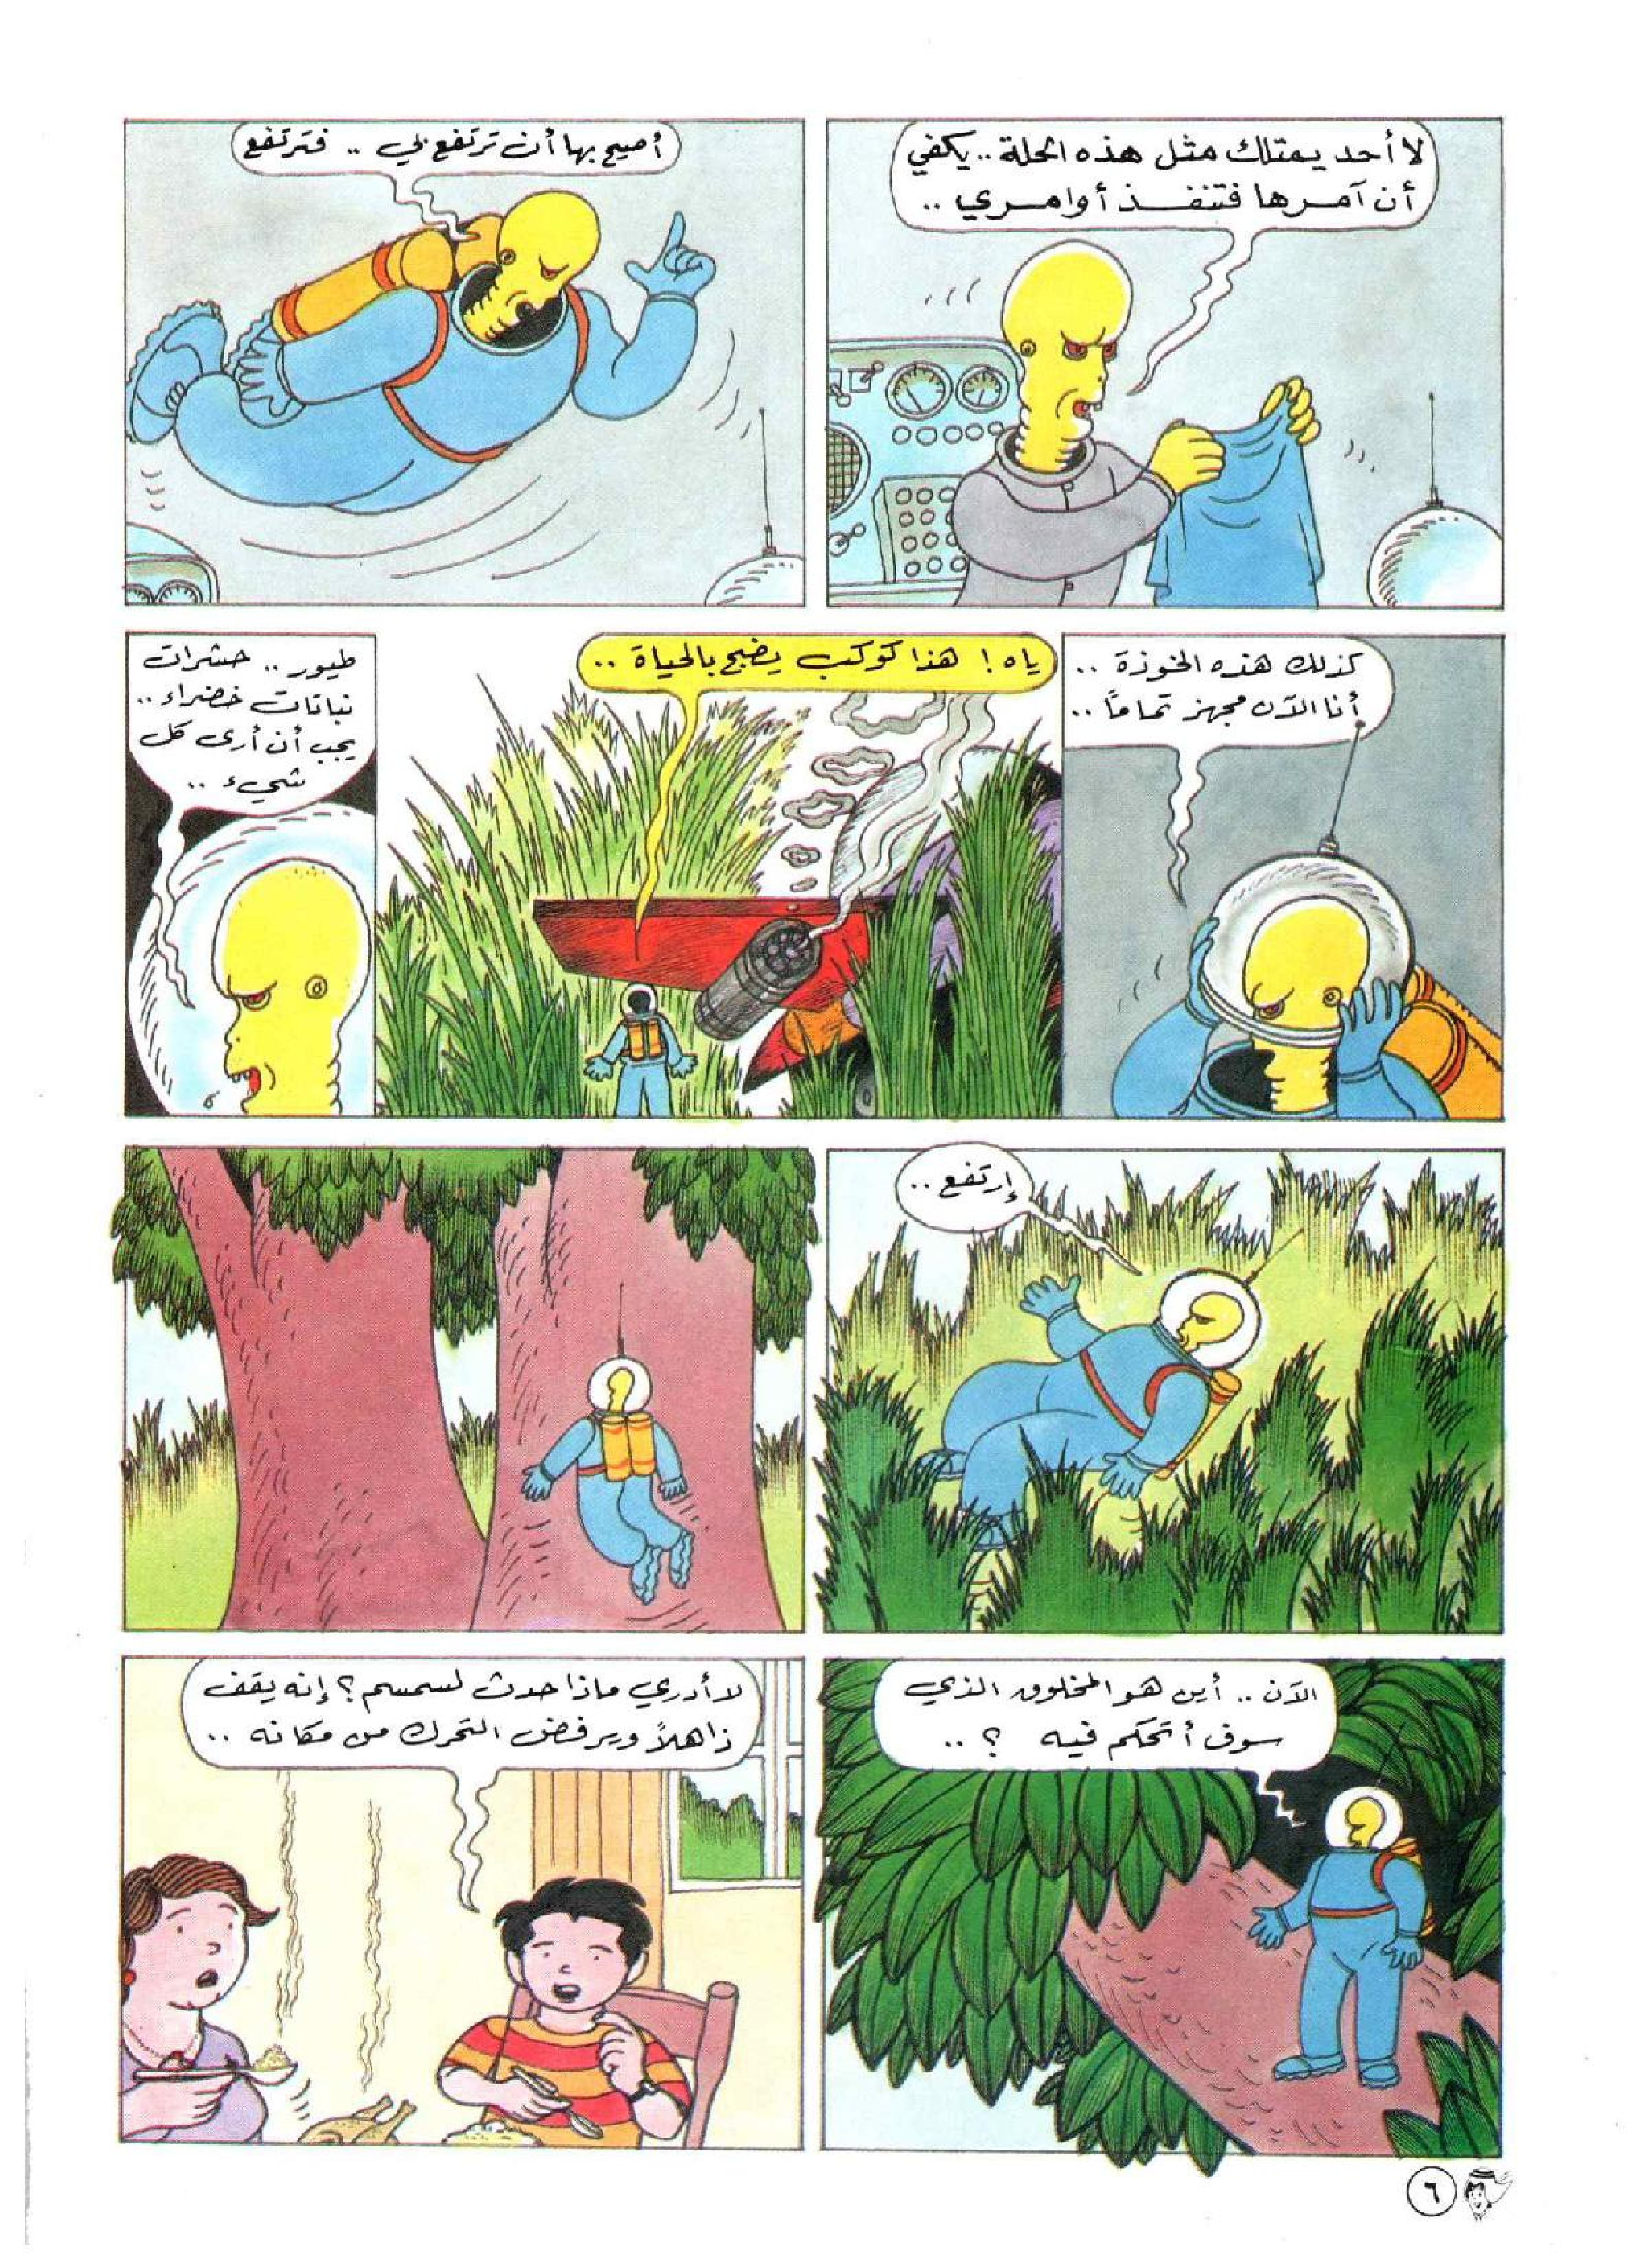 لا أحد يمتلك مثل هذه الحلة .. يكفي
أن آمرها فتنفذ أوامري ..
أصيح بها أن ترتفع بي .. فترتفع
كذلك هذه الخوذة ..
أنا الآن مجهز تماماً ..
ياه ! هذا كوكب يضج بالحياة ..
طيور .. حشرات
نباتات خضراء ..
يجب أن أرى كل
شيء ..
إرتفع ..
الآن .. أين هو المخلوق الذي
سوف أتحكم فيه ؟ ..
لا أدري ماذا حدث لسمسم ؟ إنه يقف
ذاهلاً ويرفض التحرك من مكانه ..
٦